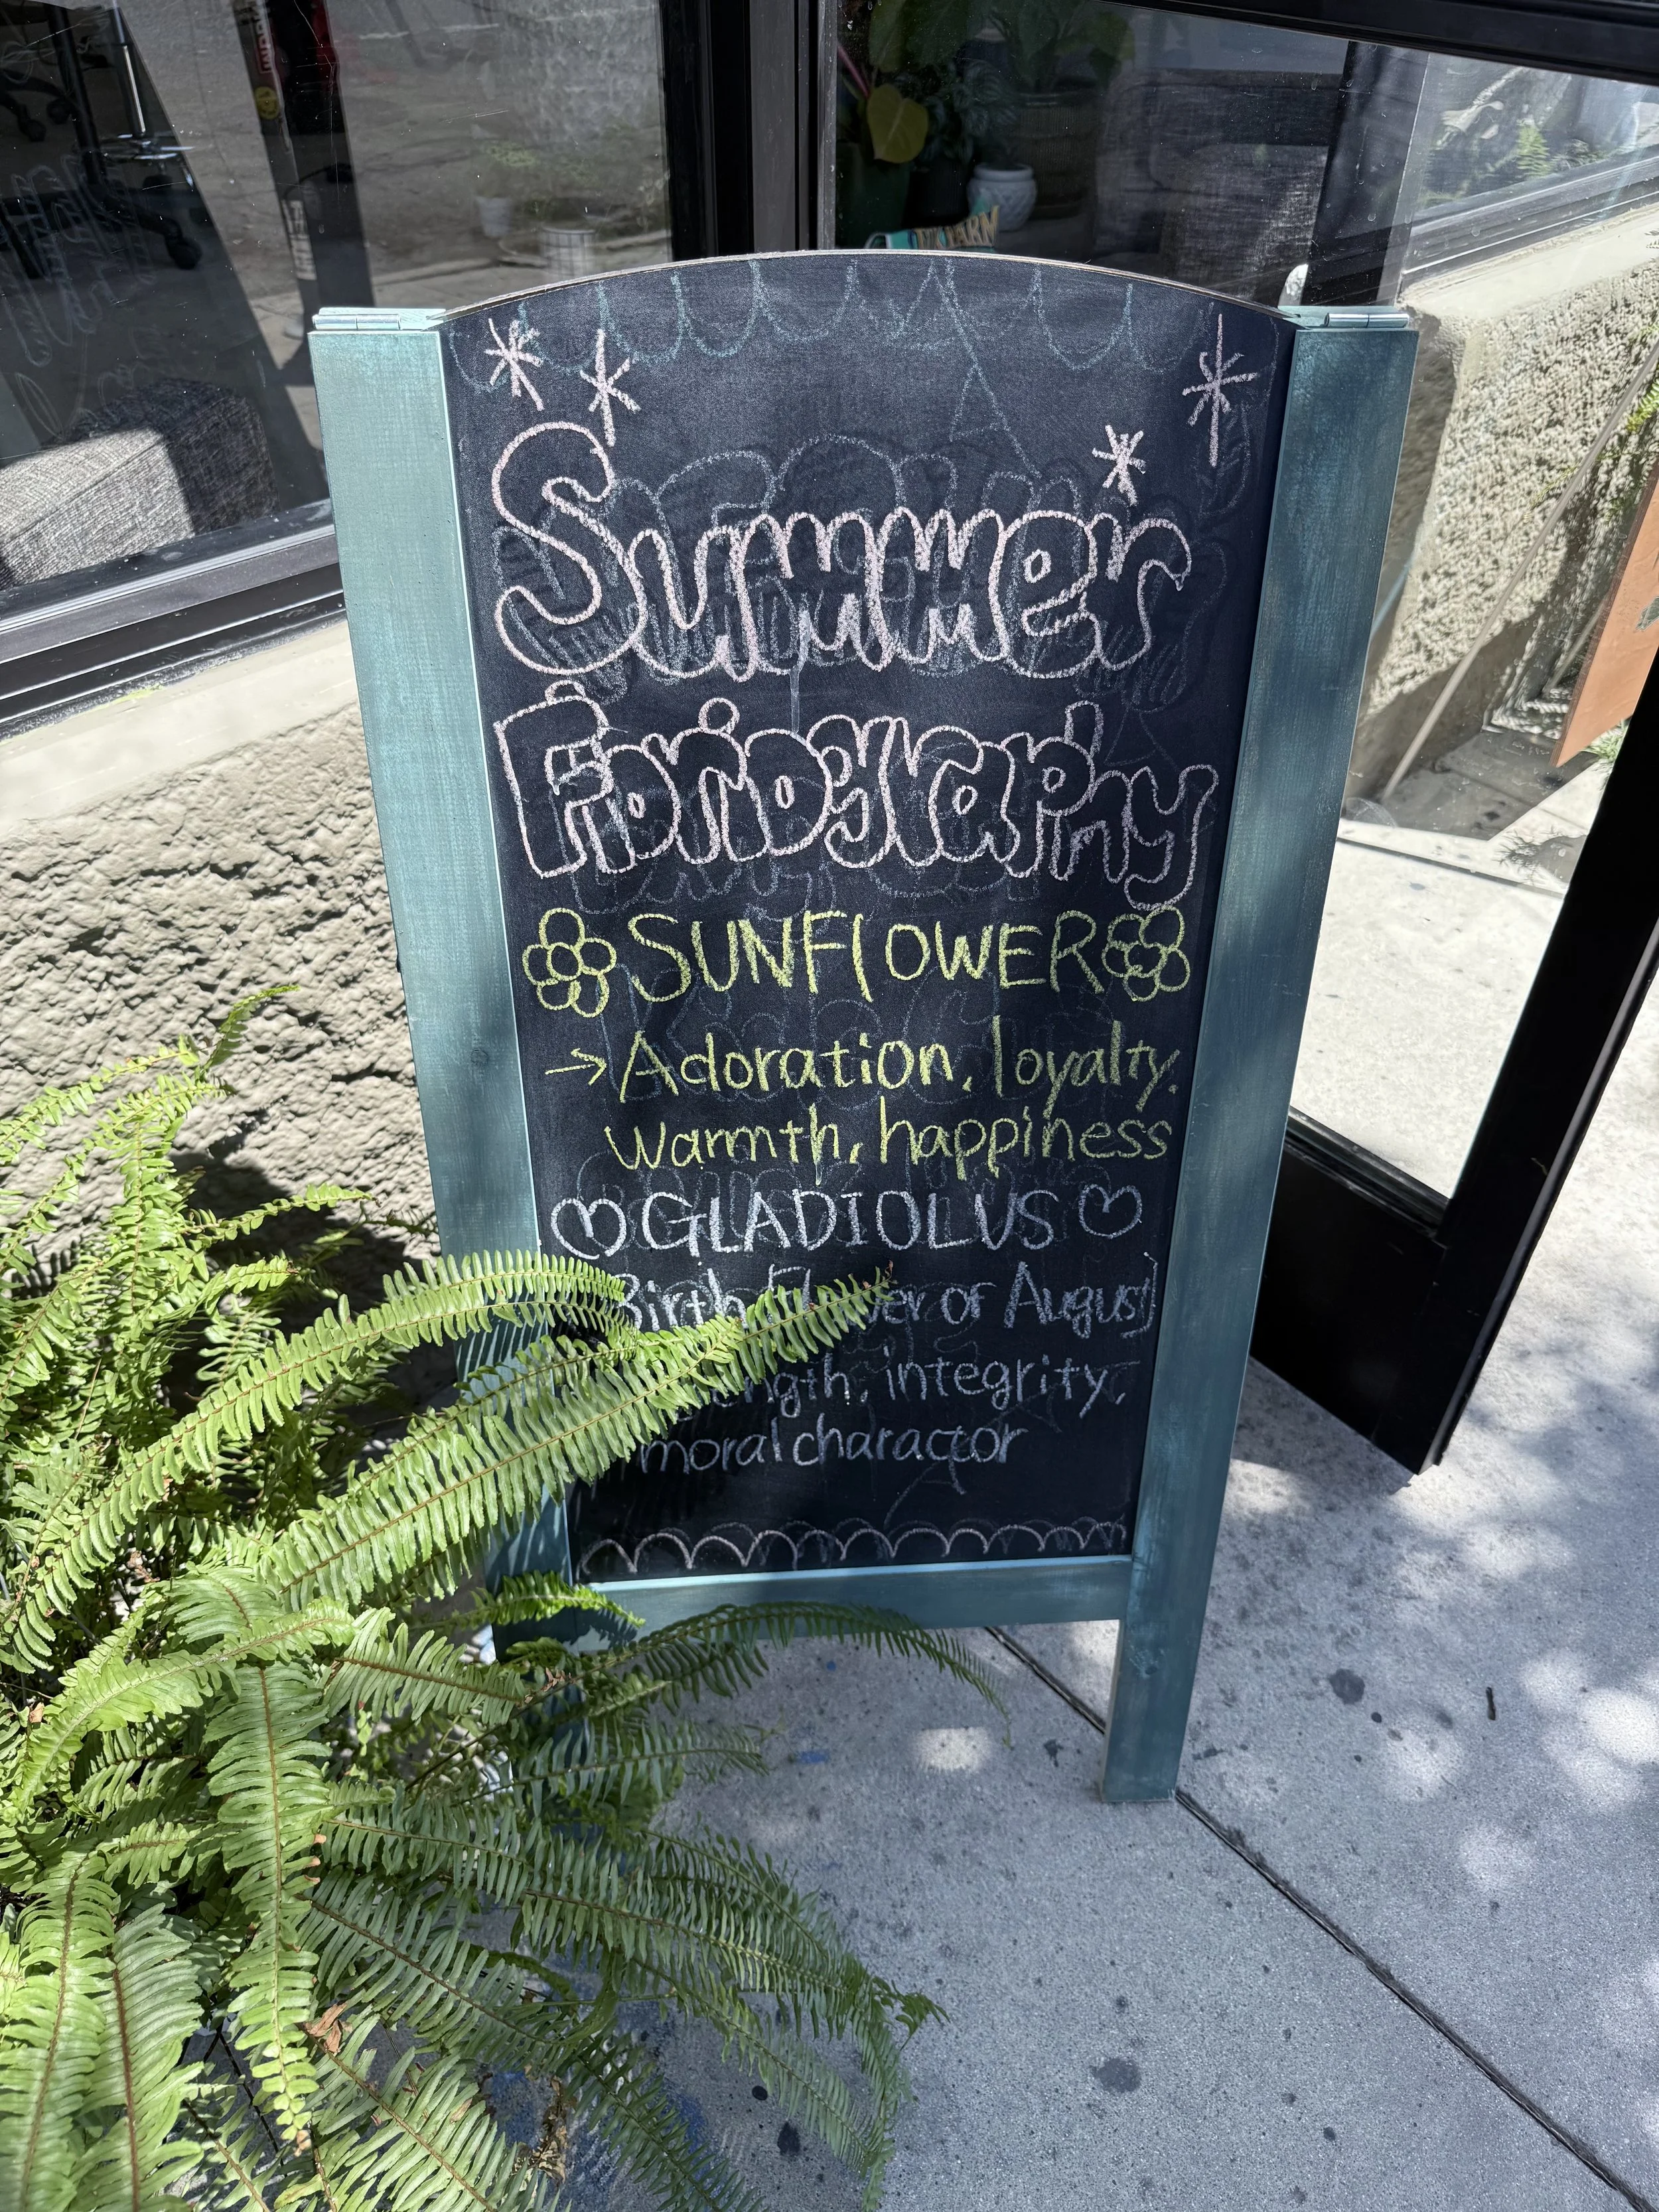 Summer
Floriography
SUNFLOWER
→ Adoration, loyalty.
warmth, happiness
GLADIOLUS
Birth flower of August)
integrity,
moral charactor